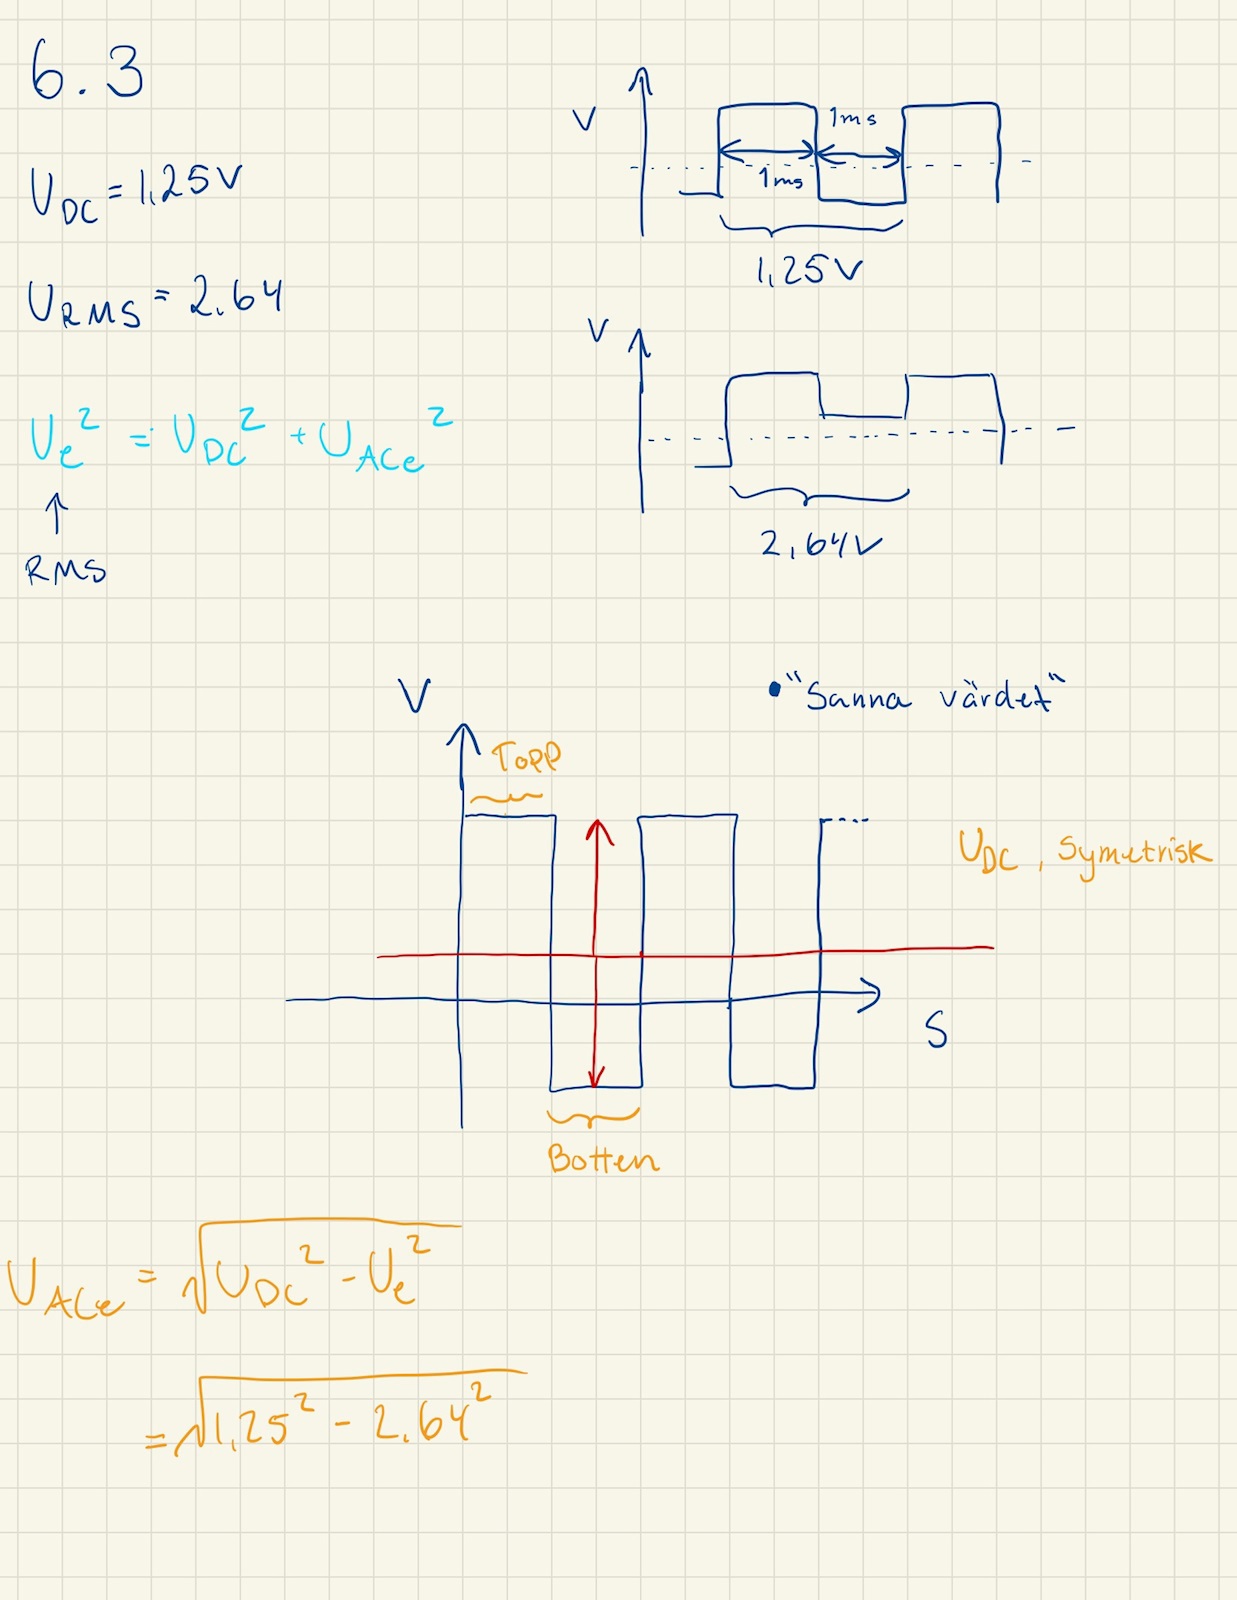 6.3
U_DC = 1,25V
U_RMS = 2.64
U_e² = U_DC² + U_ACe²
↑
RMS
V
1ms
1ms
1,25V
V
2,64V
• "Sanna värdet"
V
Topp
U_DC, Symetrisk
S
Botten
U_ACe = √(U_DC² - U_e²)
= √(1,25² - 2.64²)